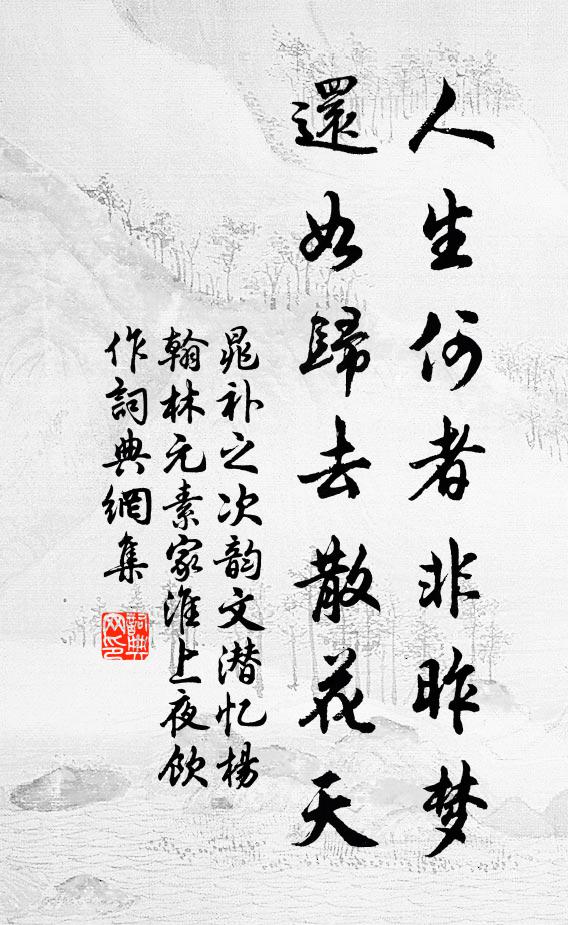 人生何者非昨梦
還如歸去散花天
晁补之次韵文潜忆杨
翰林元素家淮上夜饮
作詞典網集
詞典
网印